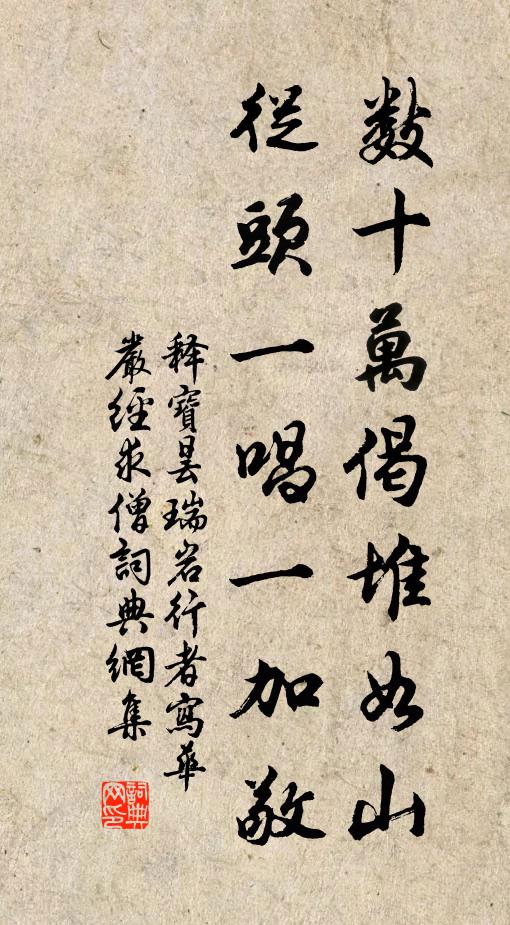 數十萬偈堆如山
從頭一唱一加敬
释寶曇瑞岩行者寫華
嚴經求僧詞典網集
詞典
网印